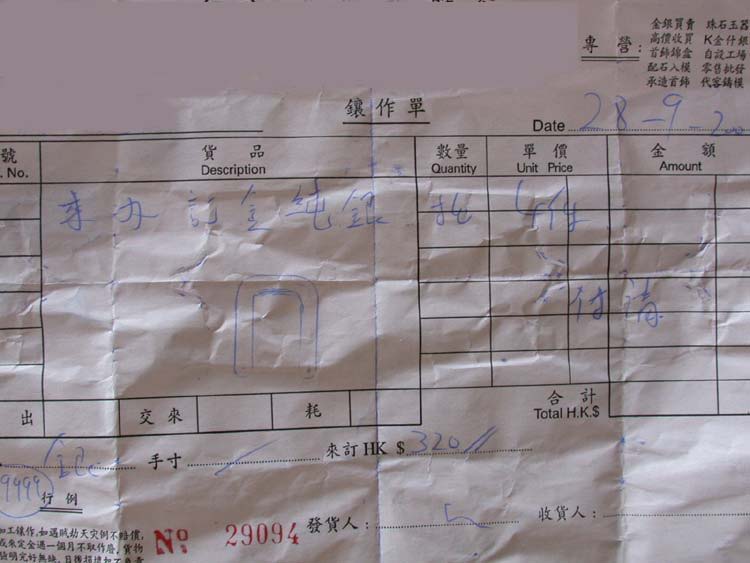 專營：
金銀買賣 珠石玉器
高價收買 K金什銀
首飾錦盒 自設工場
配石入模 零售批發
承造首飾 代客鑄模
鑲作單
Date 28-9-200
號 貨品 數量 單價 金額
. No. Description Quantity Unit Price Amount
來办訂金純銀 4件
付清
出 交來 耗 合計
Total H.K.$
手寸 來訂HK $ 320//
9999 行例
加工鑲作,如遇賊劫天灾倒不賠償,
或來定金過一個月不取作廢,貨物
No 29094 發貨人： 收貨人：